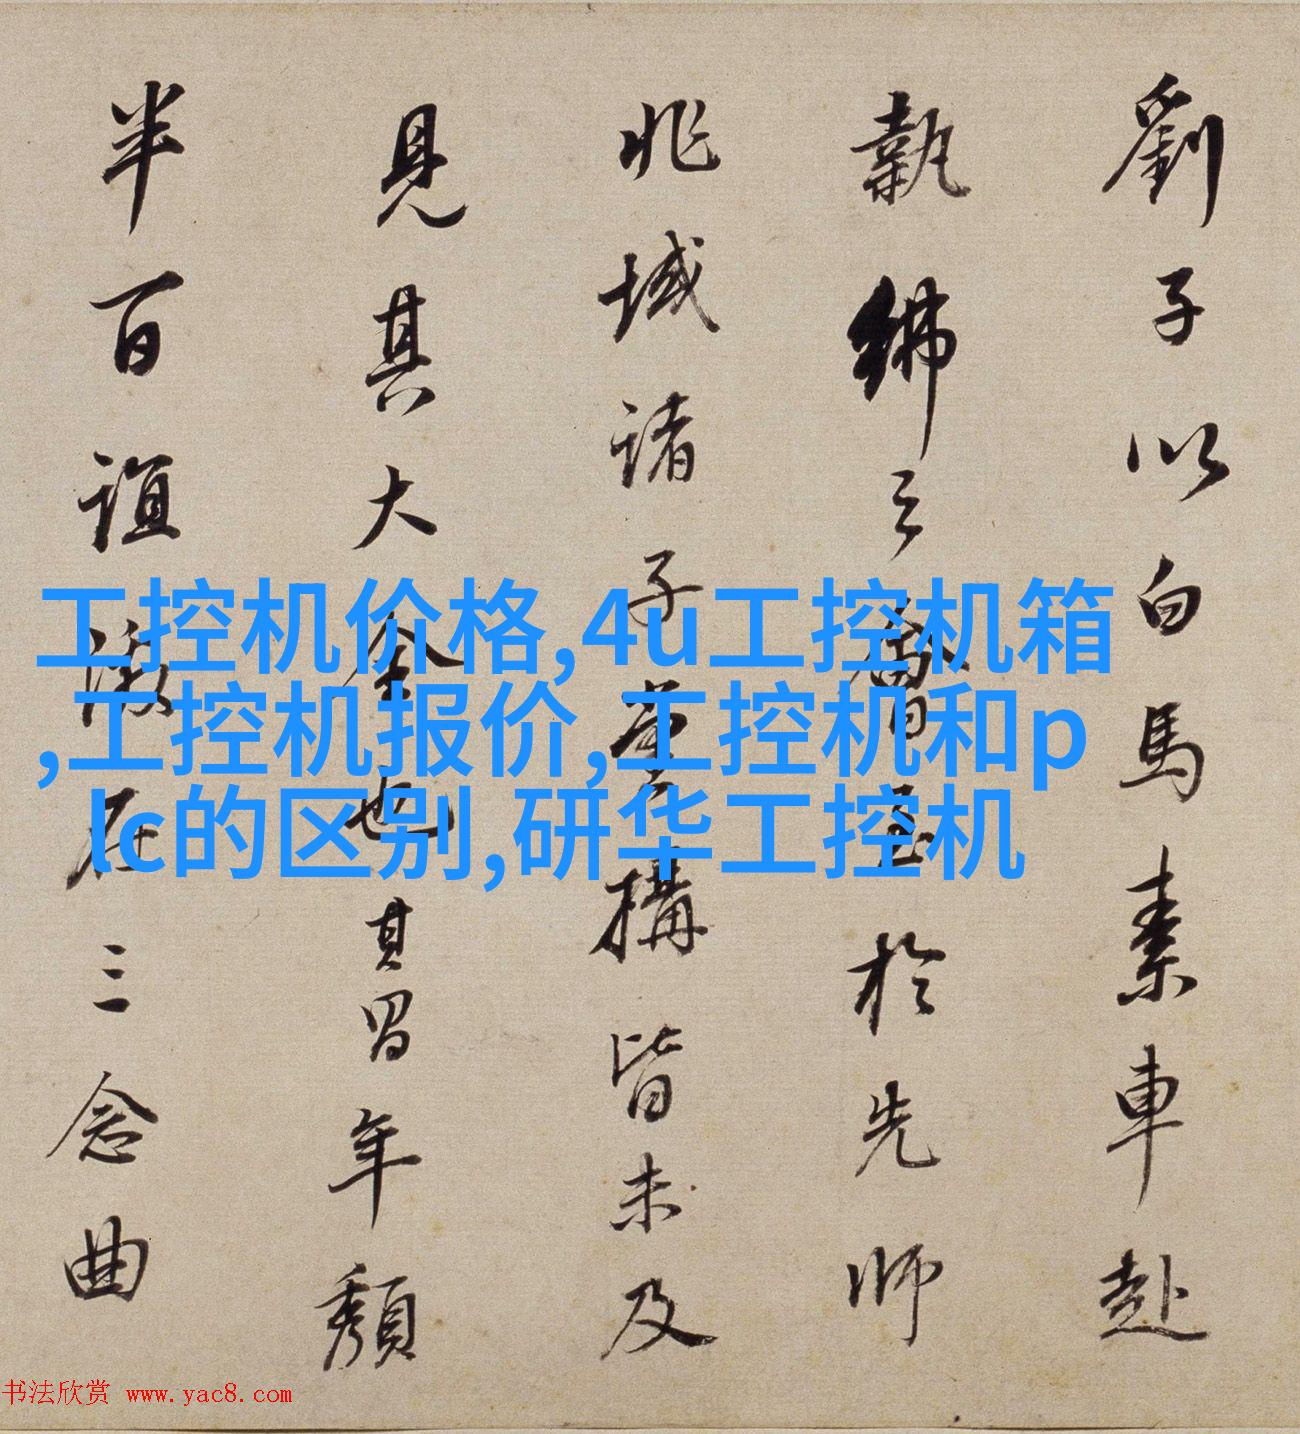 劉子以白馬素車赴
執紼之會日至於先師
兆域諸子堂構皆未及
見其大全也其習年頹
半百誼激在三念曲
工控机价格,4u工控机箱
,工控机报价,工控机和p
lc的区别,研华工控机
书法欣赏 www.yac8.com